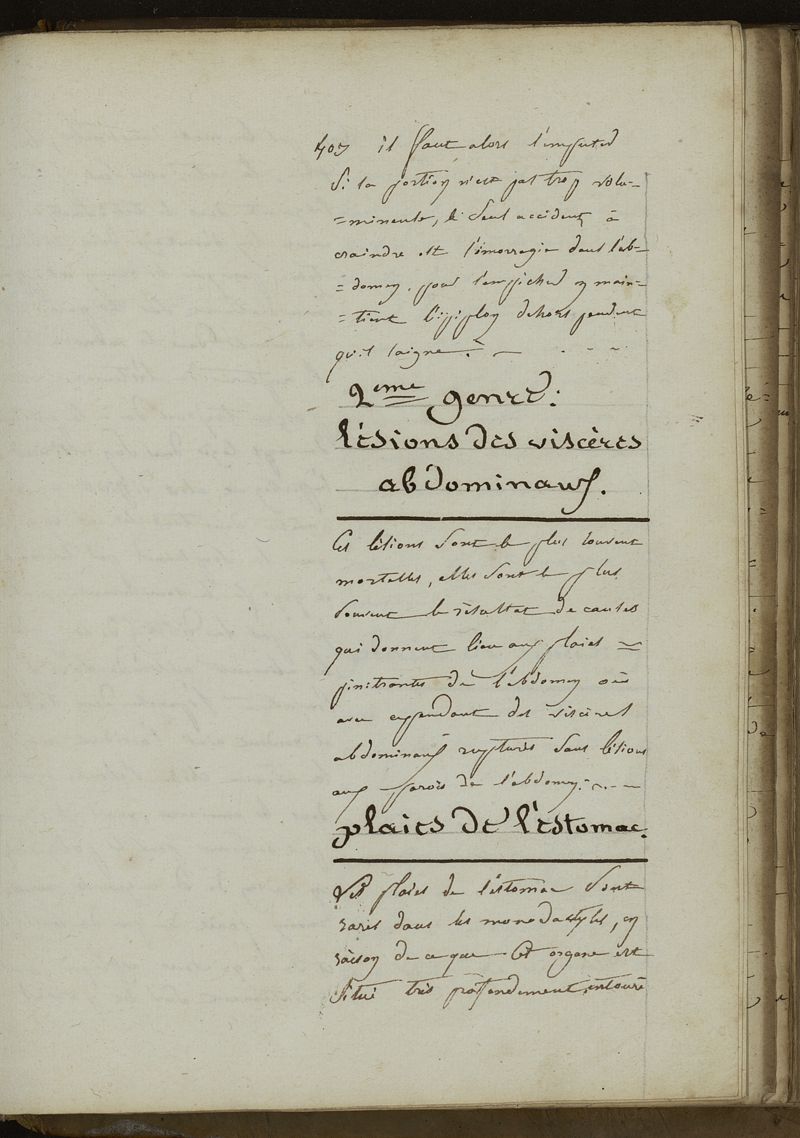 il faut alors l'emputer
Si la portion n'est pas trop volu-
=mineuse, le seul accident, à
craindre est l'émorragie dans l'ab-
=domen. pour l'empêcher on main-
=tient l'épiploy dehors pendent
qu'il saigne.
2eme genre:
lésions des viscères
abdominaux.
Ces lésions sont le plus souvent
mortelles, elles sont le plus
souvent le résultat de causes
qui donnent lieu aux plaies =
pénétrantes de l'abdomen on
a vu cependant des viscères
abdominaux rupturés sans lésions
aux parois de l'abdomen.
plaies de l'estomac.
Les plaies de l'éstomac sont
rares dans les monodactyles, en
raison de ce que cet organe est
situé très profondement, entouré